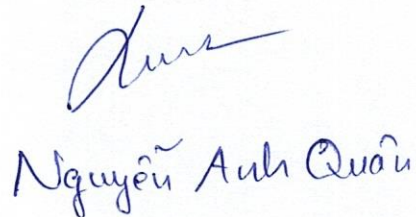 Nguyễn Anh Quân